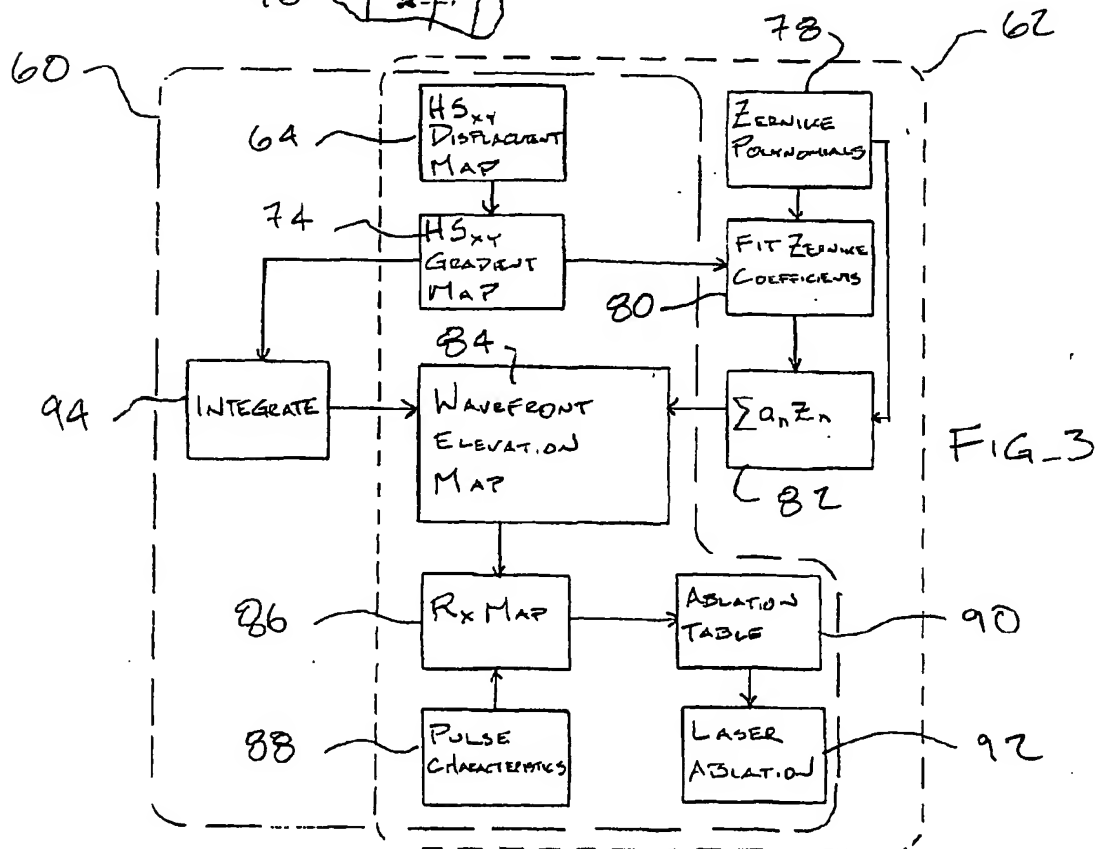 78
62
60
HSxy
DISPLACEMENT
MAP
64
ZERNIKE
POLYNOMIALS
74
HSxy
GRADIENT
MAP
FIT ZERNIKE
COEFFICIENTS
80
84
94
INTEGRATE
WAVEFRONT
ELEVATION
MAP
Σ anZn
82
FIG_3
86
Rx MAP
ABLATION
TABLE
90
88
PULSE
CHARACTERISTICS
LASER
ABLATION
92